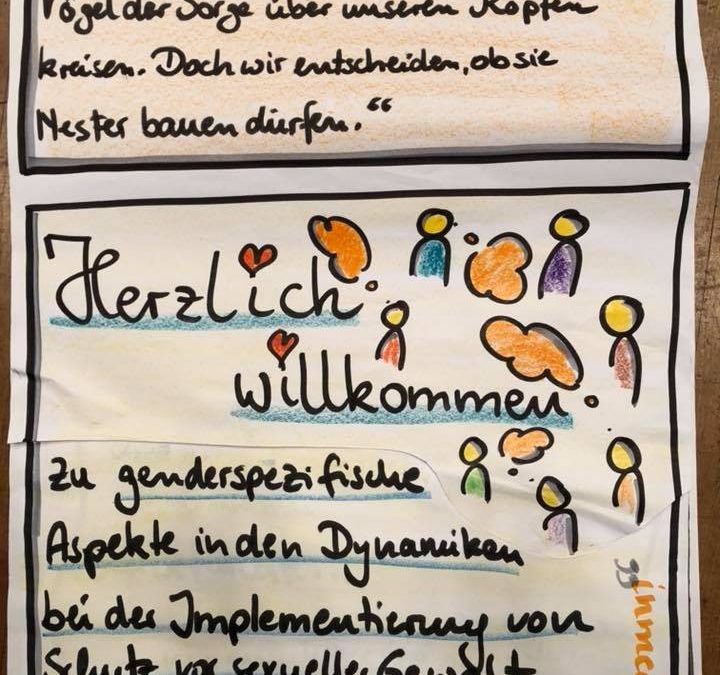 Vögel der Sorge über unseren Köpfen
kreisen. Doch wir entscheiden, ob sie
Nester bauen dürfen.“
Herzlich
willkommen
Zu genderspezifische
Aspekte in den Dynamiken
bei der Implementierung von
Schutz vor sexueller Gewalt